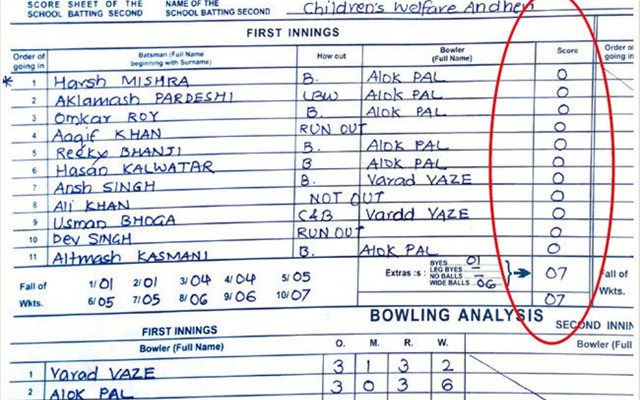 SCORE SHEET OF THE SCHOOL BATTING SECOND NAME OF THE SCHOOL BATTING SECOND Children's Welfare Andheri
FIRST INNINGS
Order of going in Batsman (Full Name beginning with Surname) How out Bowler (Full Name) Score Order of going in
* 1 Harsh MISHRA B. Alok PAL 0 1
2 Aklamash PARDESHI LBW Alok PAL 0 2
3 Omkar ROY B. Alok PAL 0 3
4 Aaqif KHAN RUN OUT 0 4
5 Reeky BHANJI B. Alok PAL 0 5
6 Hasan KALWATAR B Alok PAL 0 6
7 Ansh SINGH B. Varad VAZE 0 7
8 Ali KHAN NOT OUT 0 8
9 Usman BHOGA C&B Vardd VAZE 0 9
10 Dev SINGH RUN OUT 0 10
11 Altmash KASMANI B. Alok PAL 0 11
Fall of Wkts. 1/01 2/01 3/04 4/04 5/05
6/05 7/05 8/06 9/06 10/07
Extras :s : BYES 01 LEG BYES – NO BALLS – WIDE BALLS 06 07 Fall of Wkts.
07
BOWLING ANALYSIS
FIRST INNINGS SECOND INNIN
Bowler (Full Name) O. M. R. W. Bowler (Full
1 Varad VAZE 3 1 3 2
2 Alok PAL 3 0 3 6